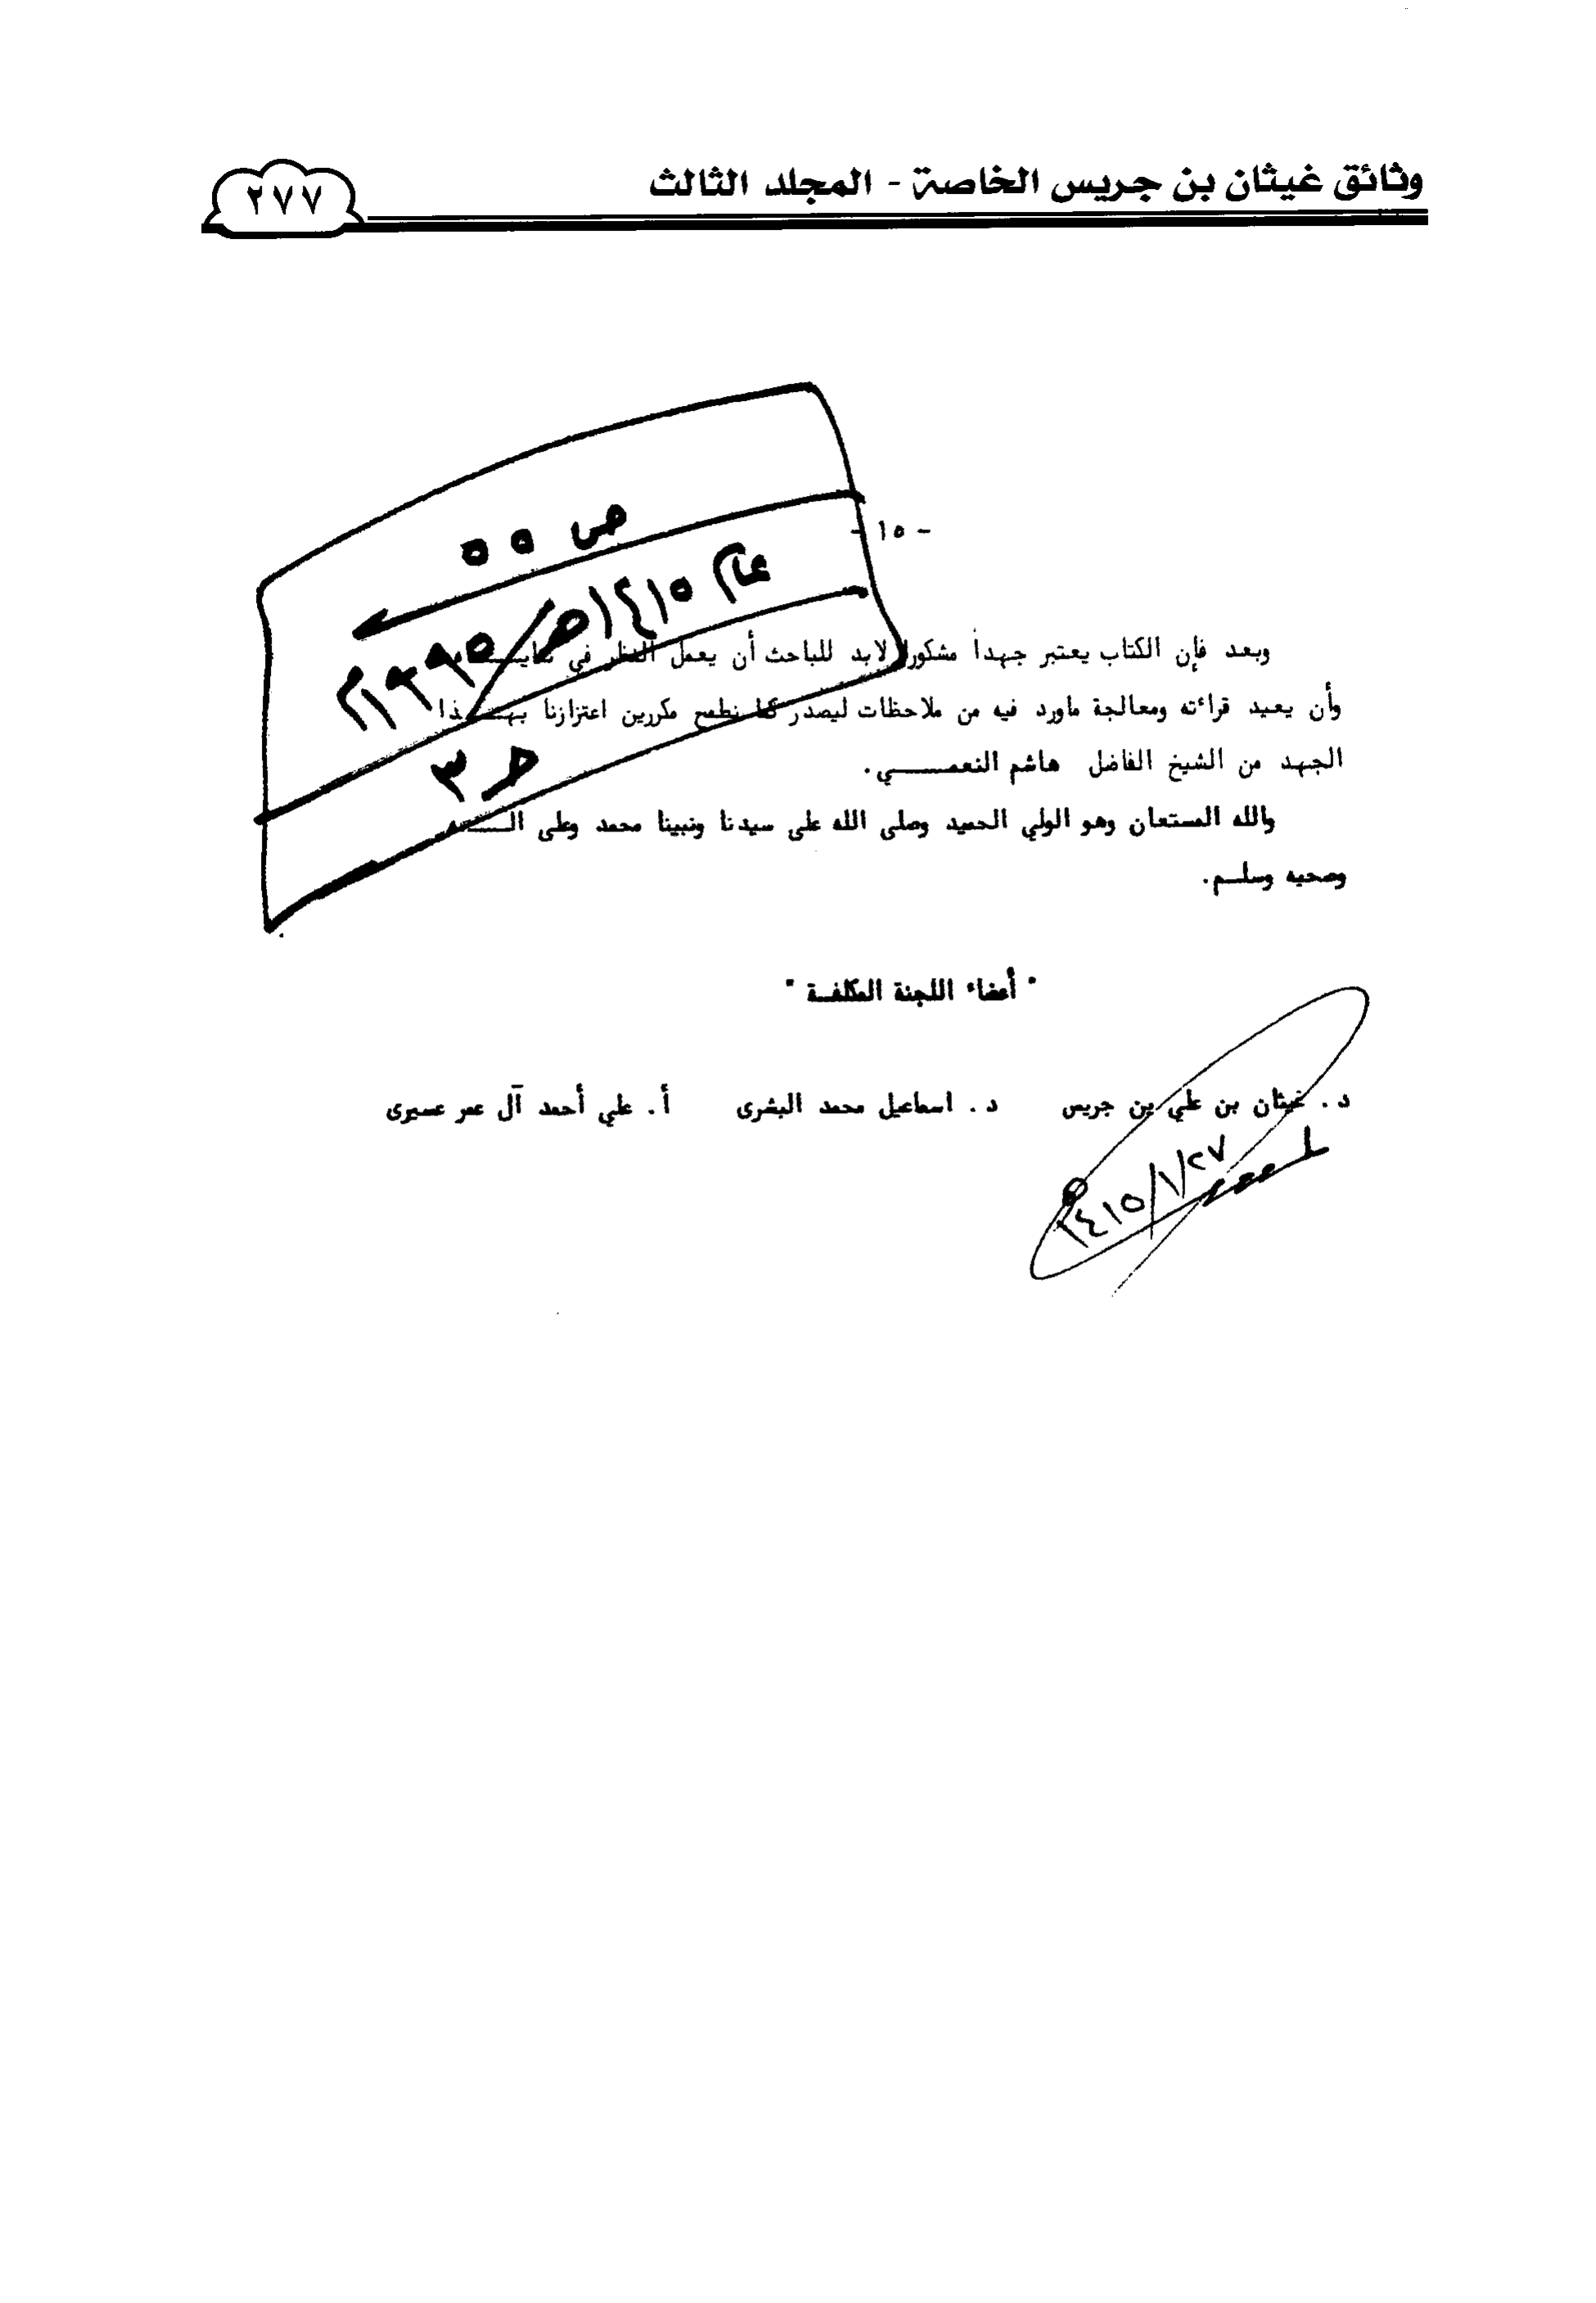 وثائق غيثان بن جريس الخاصة - المجلد الثالث
٢٧٧
- ١٥ -
ص ٥٥
عام ١٤١٥هـ/١٩٩٥م
٣
وبعد فإن الكتاب يعتبر جهداً مشكورا لابد للباحث أن يعمل النظر في
وأن يعيد قراءته ومعالجة ماورد فيه من ملاحظات ليصدر كما نطمح مكررين اعتزازنا بهــذا
الجهد من الشيخ الفاضل هاشم النعمــــي.
والله المستعان وهو الولي الحميد وصلى الله على سيدنا ونبينا محمد وعلى آلــــه
وصحبه وسلــم.
" أعضاء اللجنة المكلفــة "
د. غيثان بن علي بن جريس
د. اسماعيل محمد البشرى
أ. علي أحمد آل عمر عسيرى
١٤١٥/١/٢٧